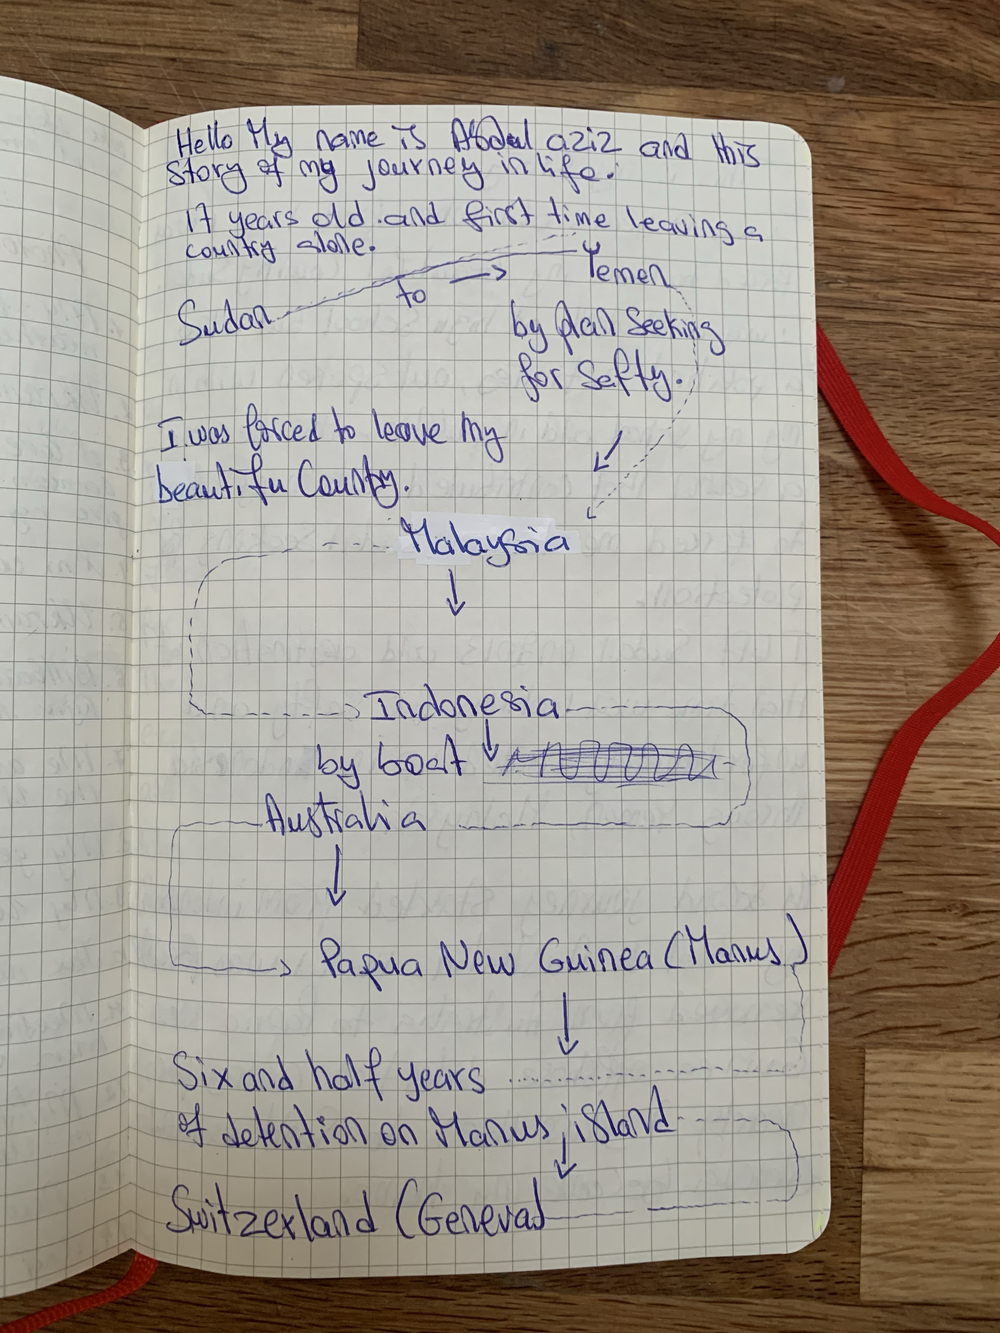 Hello My name is Abdul aziz and this
story of my journey in life.
17 years old and first time leaving a
country alone.
Yemen
Sudan to
by plan Seeking
for Safty.
I was forced to leave my
beautifu County.
Malaysia
Indonesia
by boat
Australia
Papua New Guinea (Manus)
Six and half years
of detention on Manus island
Switzerland (Geneva)